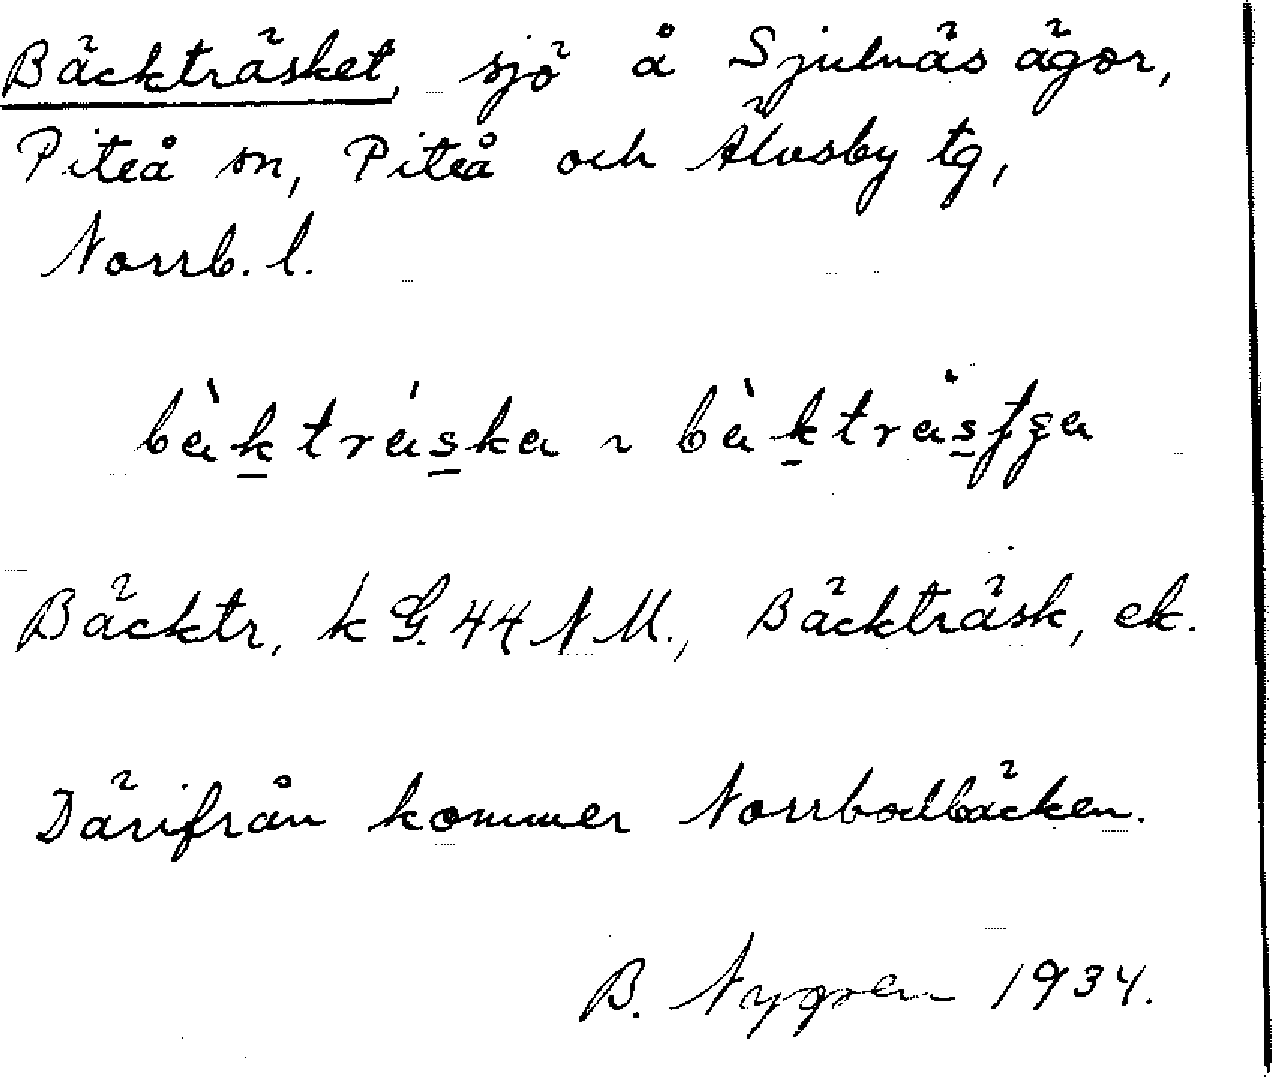 Bäckträsket, sjö å Sjulnäs ägor,
Piteå sn, Piteå och Älvsby tg,
Norrb. l.
bàkträska ~ bàkträsʃʒa
Bäcktr, k G. 44 N M., Bäckträsk, ek.
Därifrån kommer Norrbodbäcken.
B. Nygren 1934.